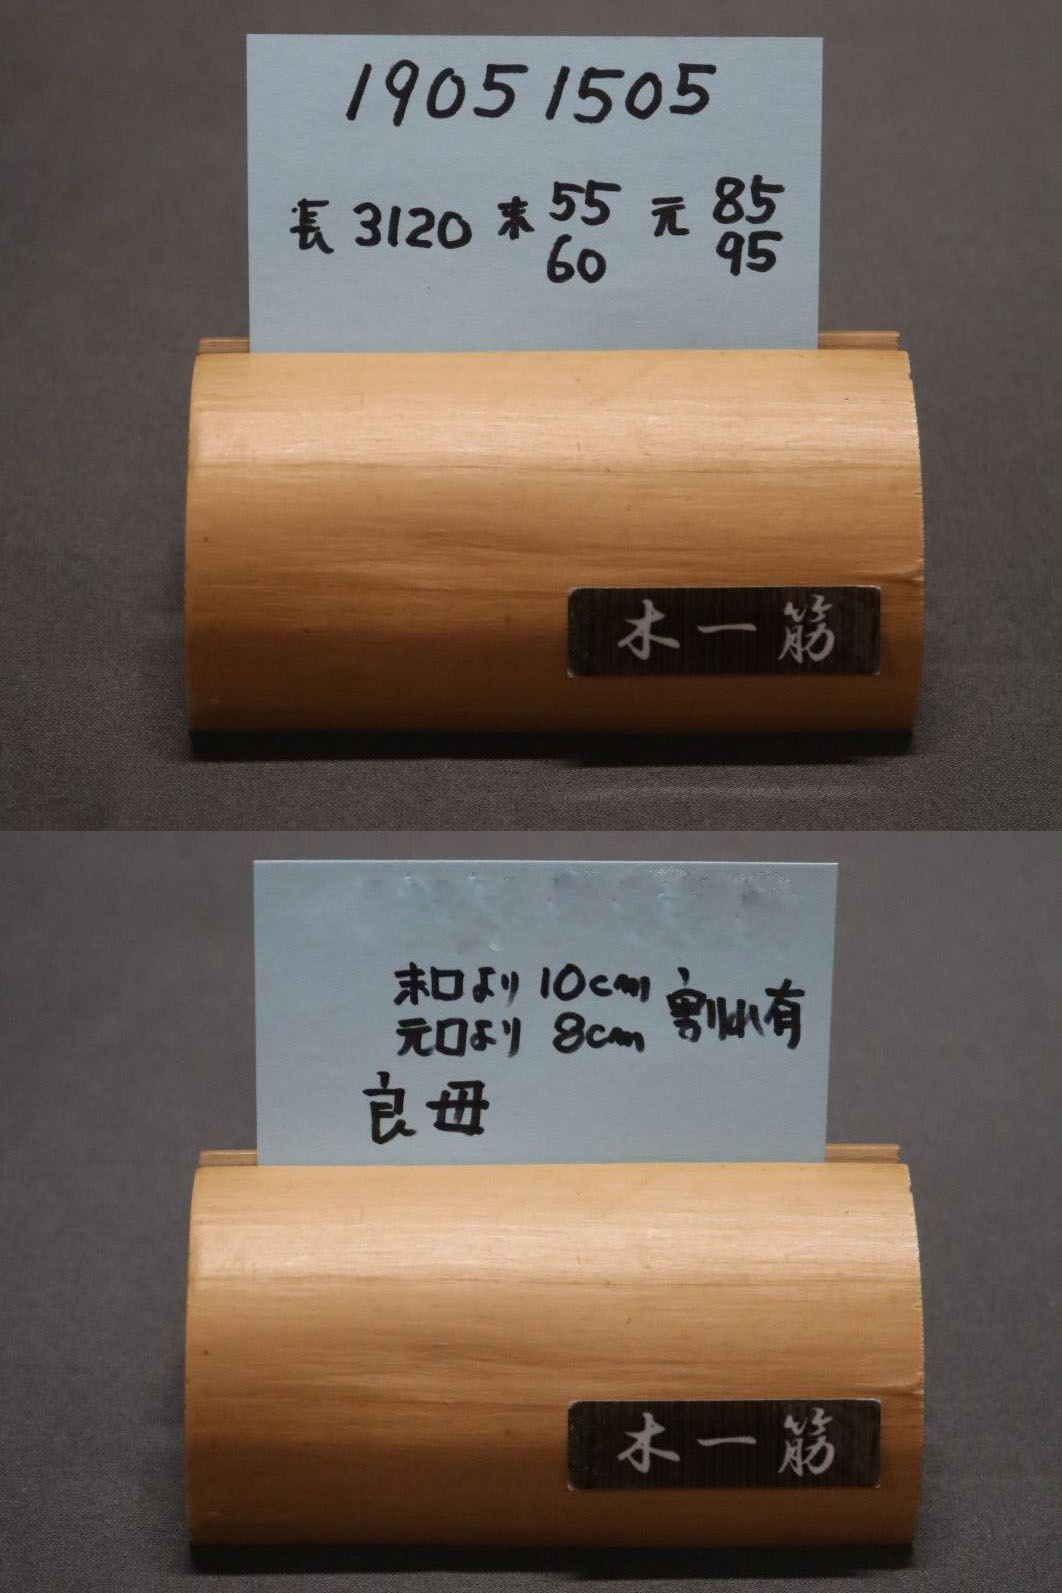 19051505
長 3120 末 55 元 85
60 95
木一筋
末口より 10cm 割れ有
元口より 8cm
良母
木一筋